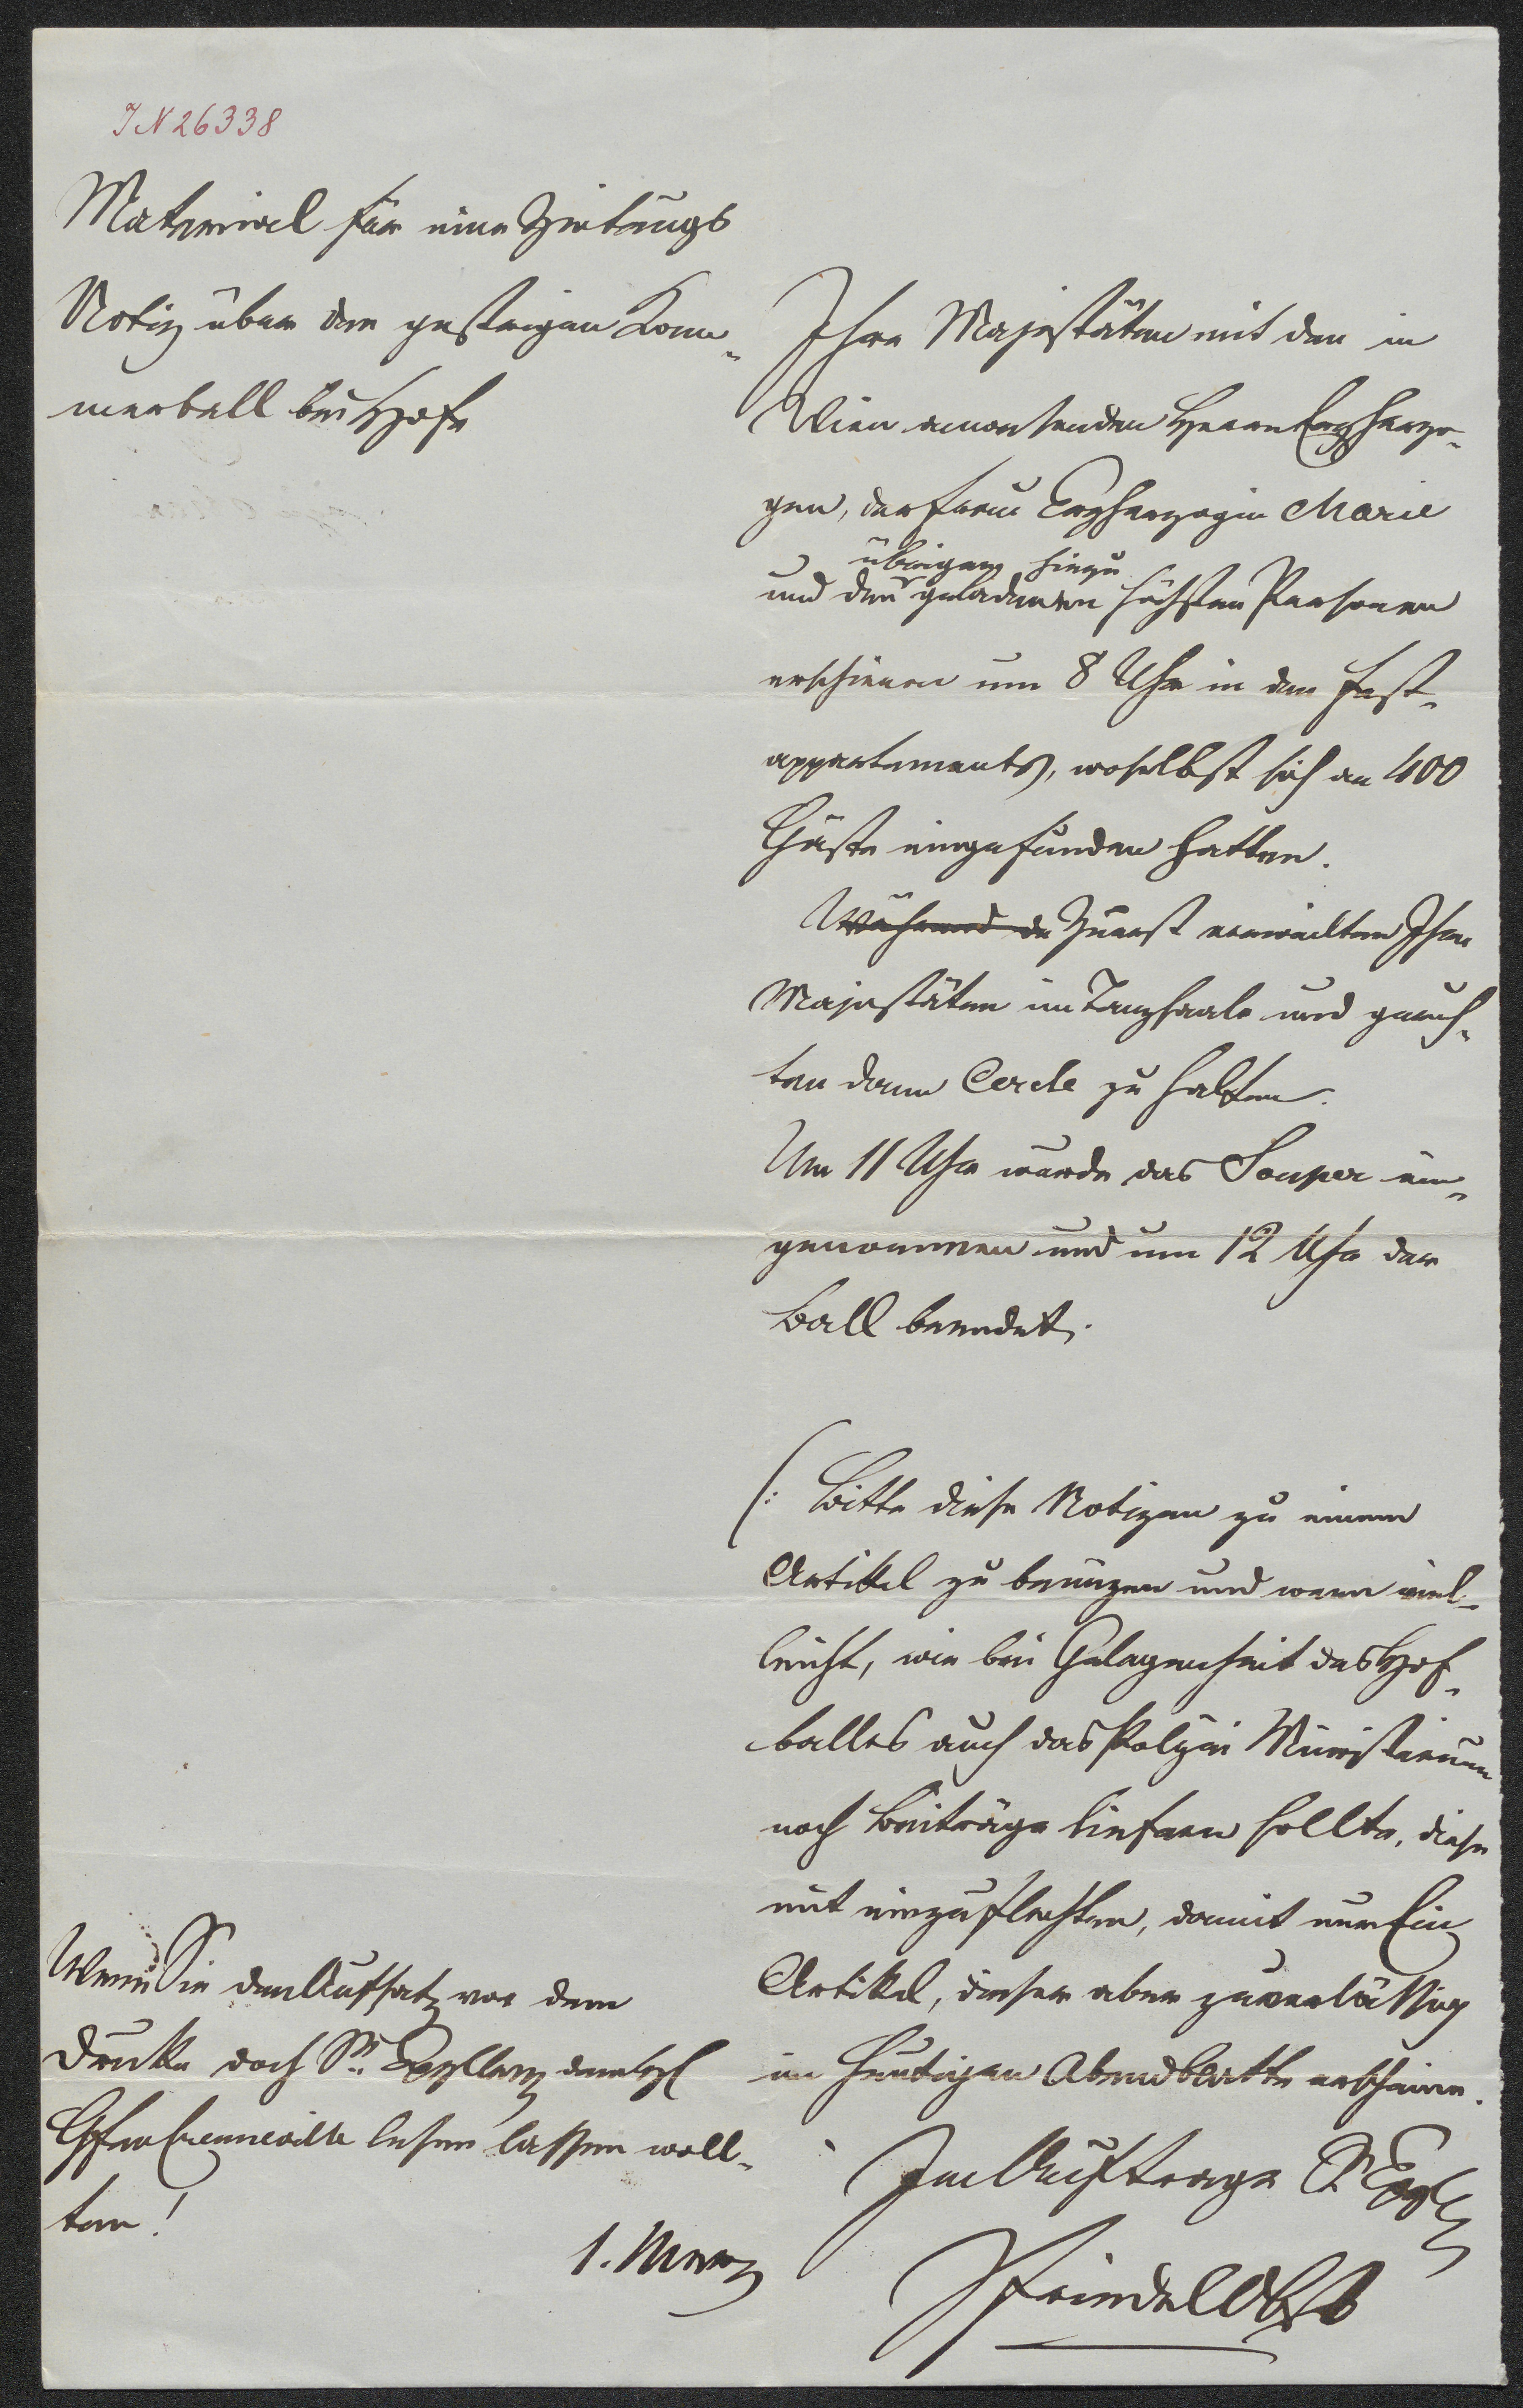 IN 26338
Material für eine Zeitungs
Notiz über den gestrigen Kam¬
merball bei Hofe
Ihre Majestäten mit den in
Wien anwesenden Herrn Erzherzo¬
gen, der Frau Erzherzogin Marie
übrigen hiezu
und den geladenen höchsten Personen
erschienen um 8 Uhr in den Fest¬
appartements, woselbst sich an 400
Gäste eingefunden hatten.
Während de Zuerst verweilten Ihre
Majestäten im Tanzsaale und geruh¬
ten dann Cercle zu halten.
Um 11 Uhr wurde das Souper ein¬
genommen und um 12 Uhr der
Ball beendet.
(: Bitte diese Notizen zu einem
Artikel zu benützen und wenn viel¬
leicht, wie bei Gelegenheit des Hof¬
balles auch das Polizei Ministerium
noch Beiträge liefern sollte, diese
mit einzuflechten, damit nur Ein
Artikel, dieser aber zuverlässig
im heutigen Abendblatte erscheine.
Im Auftrage Sr Exzllz
Friedel Obst
Wenn Sie den Aufsatz vor dem
Drucke doch Sr. Exzellenz dem H
Gfen Crenneville lesen lassen woll¬
ten!
1. März